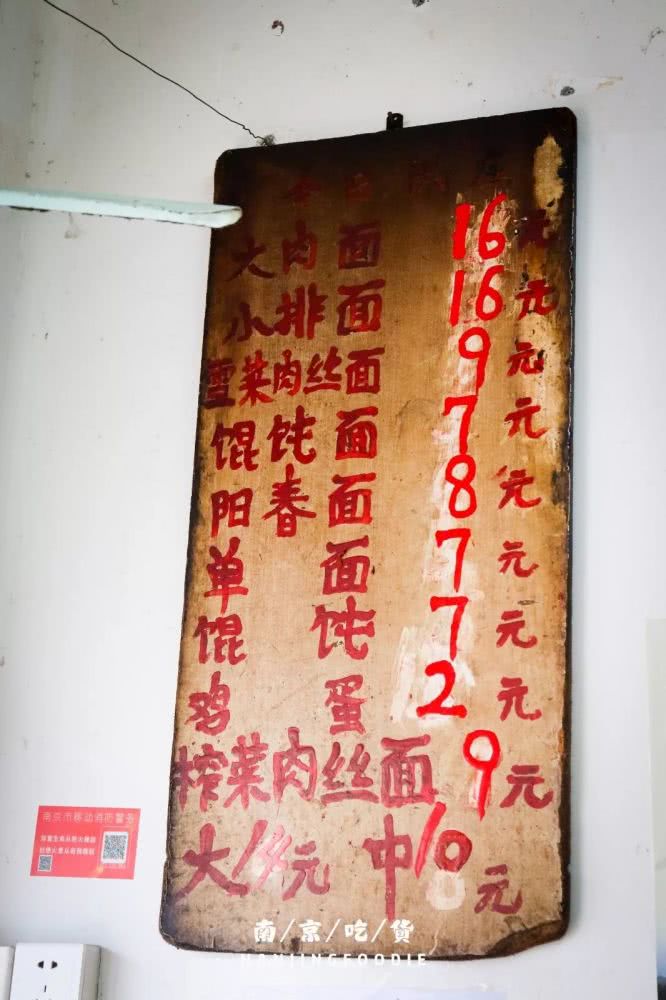 大肉面 16元
小排面 16元
雪菜肉丝面 9元
馄饨面 7元
阳春面 8元
单面 7元
馄饨 7元
鸡蛋 2元
榨菜肉丝面 9元
大14元 中10元
南京市移动消防警务
南/京/吃/货
NANJINGFOODIE